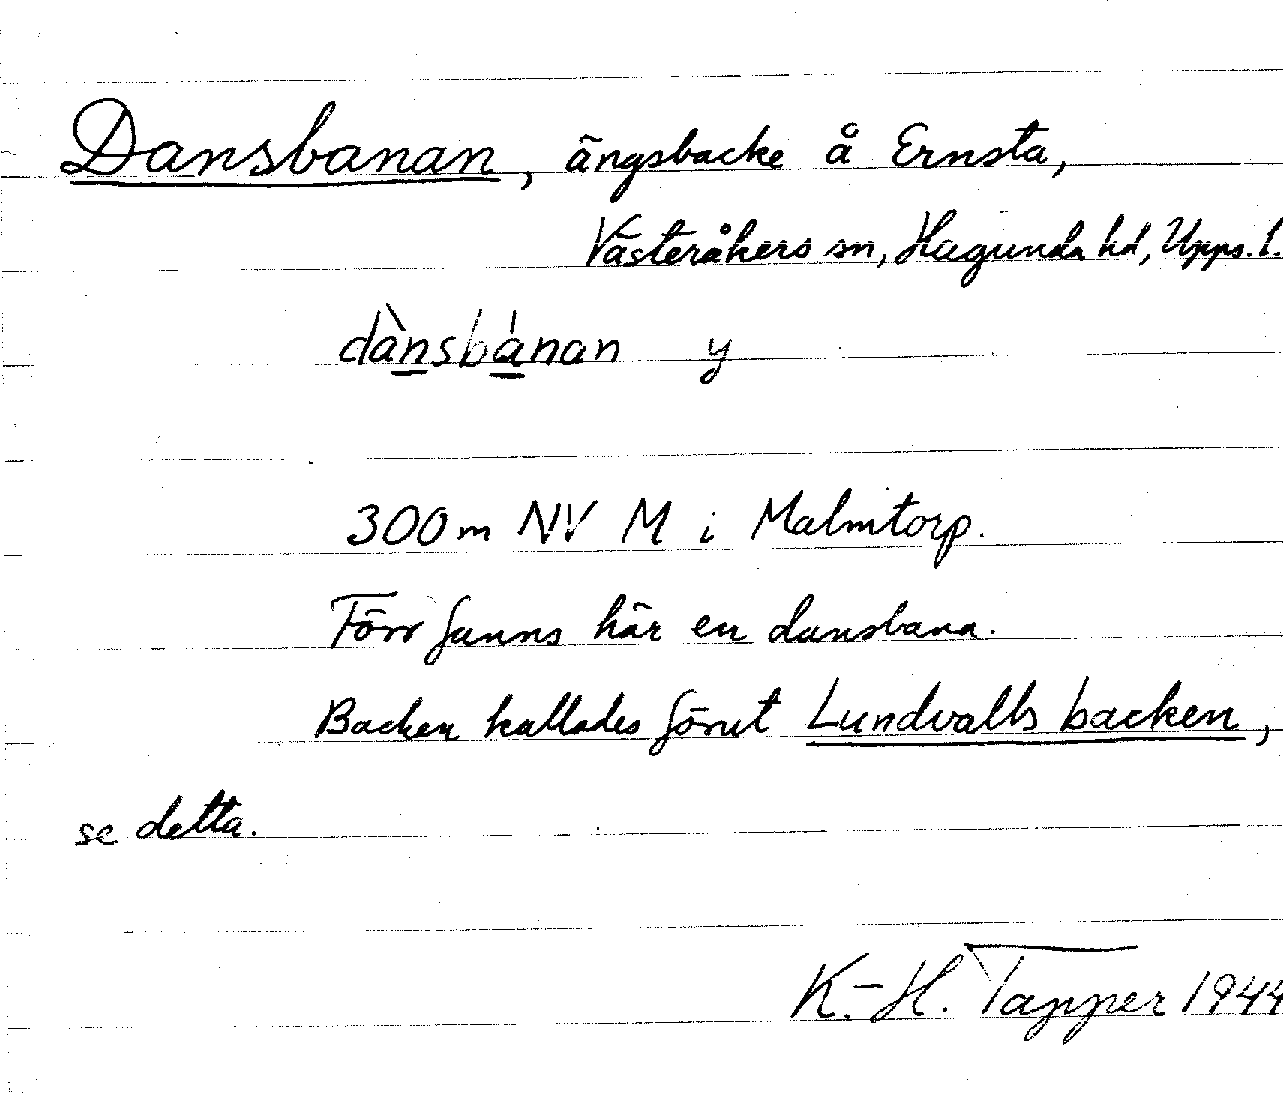 Dansbanan, ängsbacke å Ernsta,
Västeråkers sn, Hagunda hd, Upps. l.
dànsbánan y
300 m NV M i Malmtorp.
Förr fanns här en dansbana.
Backen kallades förut Lundvalls backen,
se detta.
K.-H. Tapper 1944